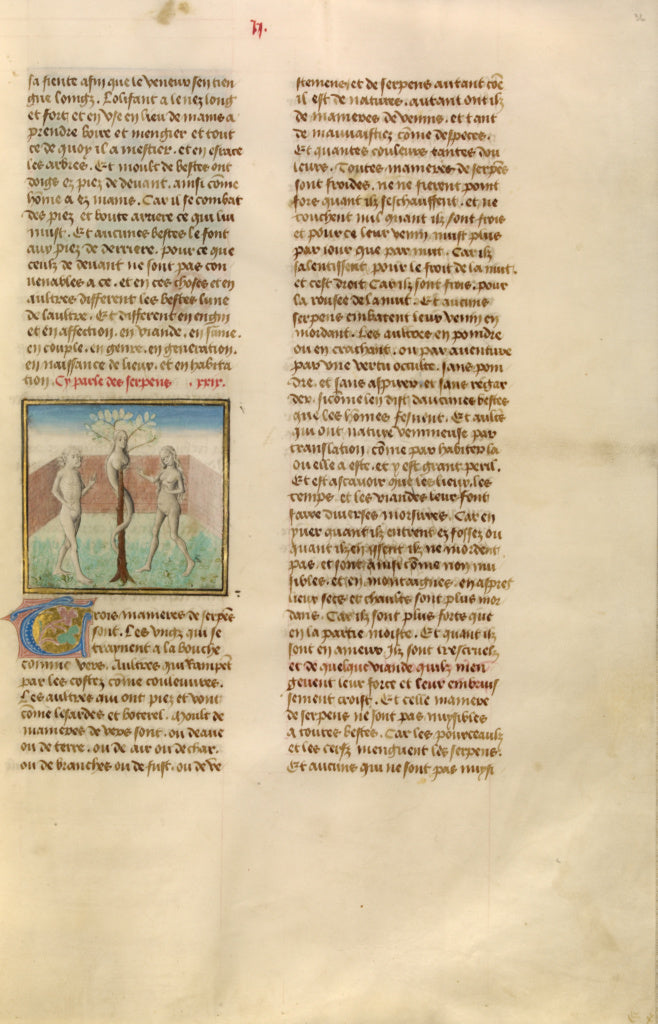 .vi.
sa fiente afin que le veneur sen tien
gne loingz. Lolifant a le nez long
et fort. et en vse en lieu de mains a
prendre boire et mengier et tout
ce de quoy il a mestier. et en esrace
les arbres. Et moult de bestes ont
dois es piez de devant. ainsi cōme
hōme a ez mains. Car il se combat
des piez et boute arriere ce qui lui
nuist. Et aucunes bestes le font
aux piez de derriere. pour ce que
ceulz de devant ne sont pas con
uenables a ce. et en ces choses et en
aultres different les bestes lune
de laultre. Et different en engin
et en affection. en viande. en
en couple. en genre. en generation.
en naissance de lieux. et en habita
tion. Cy parle des serpens .xxix.
Trois manieres de serpēs
sont. Les vngz qui se
traynent a la bouche
comme vers. Aultres qui rampēt
par les costez cōme couleuures.
Les aultres qui ont piez et vont
cōme lesardes et boterel. Moult de
manieres de vers sont. ou deaue
ou de terre. ou de air ou de char.
ou de branches ou de fust. ou de ve
stemens. et de serpens autant cōe
il est de natures. autant ont ilz
de manieres de venins. et tant
de mauuaistiez cōme despeces.
Et quantes couleurs tantes dou
leurs. Toutes manieres de serpēs
sont froides. ne ne fierent point
fors quant ilz seschauffent. et ne
touchent nul quant ilz sont frois
et pour ce leur venin nuist plus
par iour que par nuit. Car ilz
salentissent pour le froit de la nuit.
et cest droit Car ilz sont frois. pour
la rousee de la nuit. Et aucuns
serpens embatent leur venin en
mordant. Les aultres en poindre
ou en crachant. ou par auenture
par vne vertu occulte. sans poin
dre. et sans aspirer et sans regar
der. sicōme len dist daucunes bestes
que les hōmes Et aulcūs
qui ont nature venimeuse par
translation. cōme par habiter la
ou elle a este. et y est grant peril.
Et est ascauoir que les lieux. les
temps. et les viandes leur font
faire diverses morsures. Car en
yuer quant ilz entrent ez fossez ou
quant ilz en issent ilz ne mordent
pas. et sont ainsi cōme non nui
sibles. et en montaignes. en aspres
lieux secs et chaulx sont plus mor
dans. Car ilz sont plus fors que
en la partie moiste. Et quant ilz
sont en ameur. Ilz sont trescruelz
et de quelque viande quilz men
geuent leur force et leur
sement croist. Et celle maniere
de serpens ne sont pas nuysibles
a toutes bestes. Car les pourceaulx
et les cerfz menguent les serpens.
Et aucuns qui ne sont pas nuysi